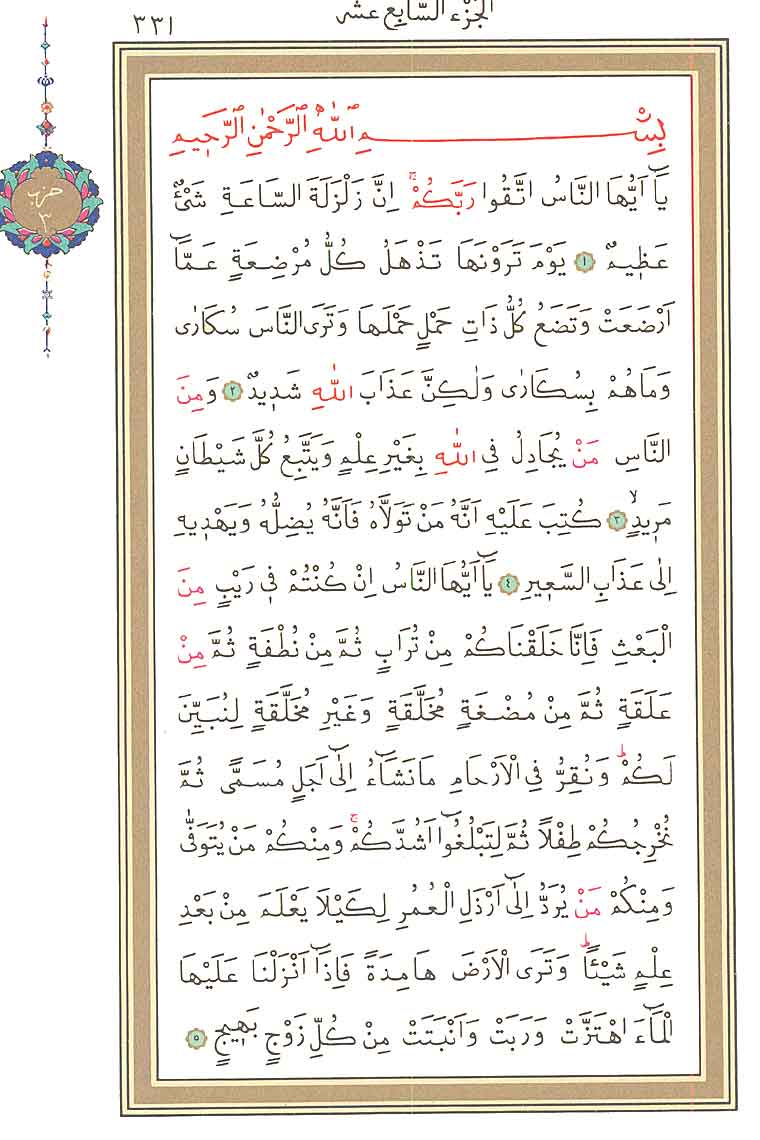 الجزء السابع عشر
٣٣١
حزب
٣
بِسْــــمِ اللّٰهِ الرَّحْمٰنِ الرَّحٖيمِ
يَٓا اَيُّهَا النَّاسُ اتَّقُوا رَبَّكُمْۚ اِنَّ زَلْزَلَةَ السَّاعَةِ شَيْءٌ
عَظٖيمٌ ﴿١﴾ يَوْمَ تَرَوْنَهَا تَذْهَلُ كُلُّ مُرْضِعَةٍ عَمَّٓا
اَرْضَعَتْ وَتَضَعُ كُلُّ ذَاتِ حَمْلٍ حَمْلَهَا وَتَرَى النَّاسَ سُكَارٰى
وَمَا هُمْ بِسُكَارٰى وَلٰكِنَّ عَذَابَ اللّٰهِ شَدٖيدٌ ﴿٢﴾ وَمِنَ
النَّاسِ مَنْ يُجَادِلُ فِي اللّٰهِ بِغَيْرِ عِلْمٍ وَيَتَّبِعُ كُلَّ شَيْطَانٍ
مَرٖيدٍۙ ﴿٣﴾ كُتِبَ عَلَيْهِ اَنَّهُ مَنْ تَوَلَّاهُ فَاَنَّهُ يُضِلُّهُ وَيَهْدٖيهِ
اِلٰى عَذَابِ السَّعٖيرِ ﴿٤﴾ يَٓا اَيُّهَا النَّاسُ اِنْ كُنْتُمْ فٖي رَيْبٍ مِنَ
الْبَعْثِ فَاِنَّا خَلَقْنَاكُمْ مِنْ تُرَابٍ ثُمَّ مِنْ نُطْفَةٍ ثُمَّ مِنْ
عَلَقَةٍ ثُمَّ مِنْ مُضْغَةٍ مُخَلَّقَةٍ وَغَيْرِ مُخَلَّقَةٍ لِنُبَيِّنَ
لَكُمْؕ وَنُقِرُّ فِي الْاَرْحَامِ مَا نَشَٓاءُ اِلٰٓى اَجَلٍ مُسَمًّى ثُمَّ
نُخْرِجُكُمْ طِفْلًا ثُمَّ لِتَبْلُغُٓوا اَشُدَّكُمْۚ وَمِنْكُمْ مَنْ يُتَوَفّٰى
وَمِنْكُمْ مَنْ يُرَدُّ اِلٰٓى اَرْذَلِ الْعُمُرِ لِكَيْلَا يَعْلَمَ مِنْ بَعْدِ
عِلْمٍ شَيْـًٔاؕ وَتَرَى الْاَرْضَ هَامِدَةً فَاِذَٓا اَنْزَلْنَا عَلَيْهَا
الْمَٓاءَ اهْتَزَّتْ وَرَبَتْ وَاَنْبَتَتْ مِنْ كُلِّ زَوْجٍ بَهٖيجٍ ﴿٥﴾